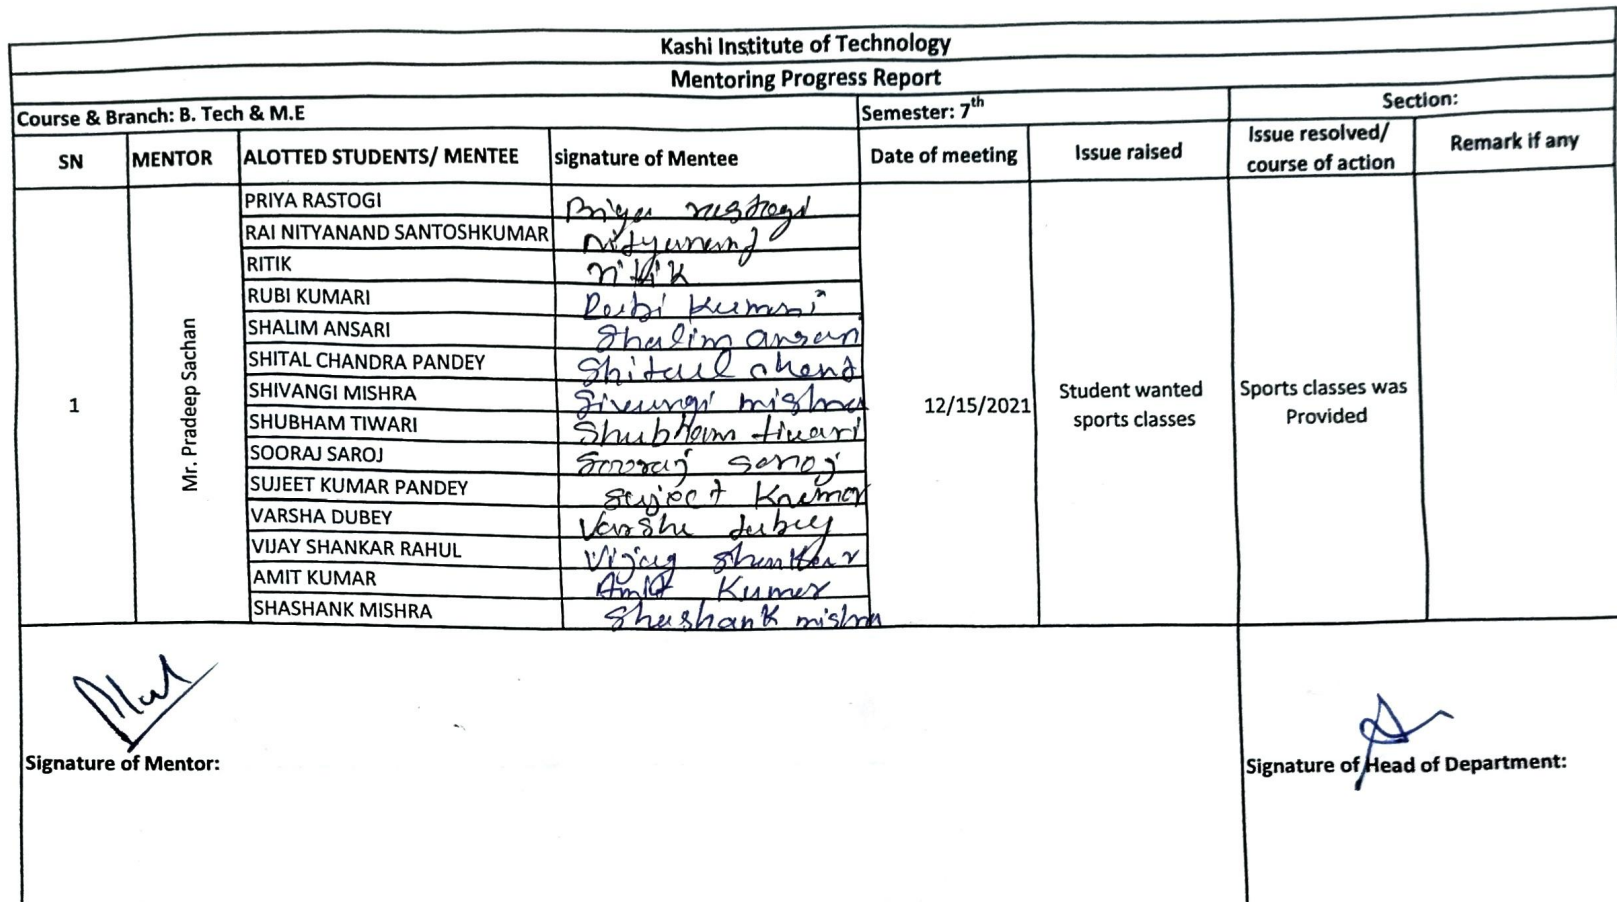 Kashi Institute of Technology
Mentoring Progress Report
Course & Branch: B. Tech & M.E Semester: 7th Section:
SN MENTOR ALOTTED STUDENTS/ MENTEE signature of Mentee Date of meeting Issue raised Issue resolved/ course of action Remark if any
1 Mr. Pradeep Sachan
PRIYA RASTOGI Priya rastogi
RAI NITYANAND SANTOSHKUMAR Nityanand
RITIK ritik
RUBI KUMARI Rubi Kumari
SHALIM ANSARI Shalim ansari
SHITAL CHANDRA PANDEY Shital chand
SHIVANGI MISHRA Sivangi mishra
SHUBHAM TIWARI Shubham tiwari
SOORAJ SAROJ Sooraj Saroj
SUJEET KUMAR PANDEY Sujeet Kumar
VARSHA DUBEY Varsha dubey
VIJAY SHANKAR RAHUL Vijay Shankar
AMIT KUMAR Amit Kumar
SHASHANK MISHRA Shashank mishra
12/15/2021
Student wanted
sports classes
Sports classes was
Provided
Signature of Mentor:
Signature of Head of Department: